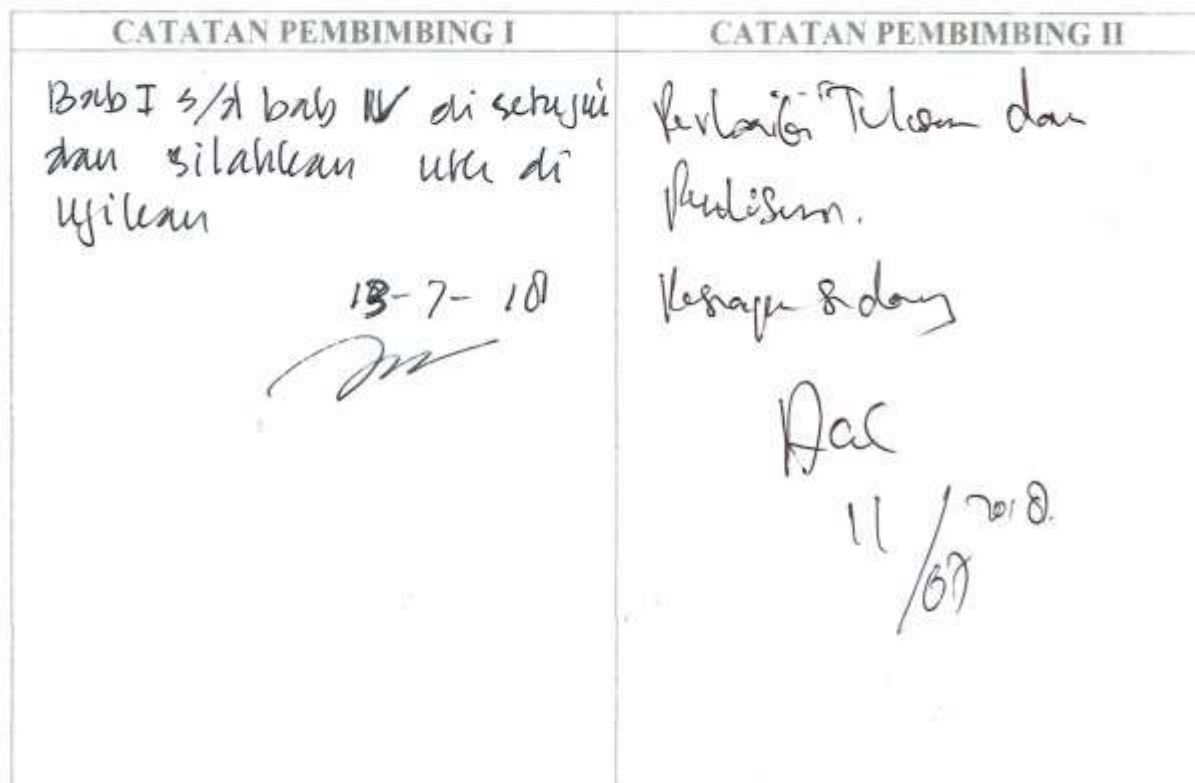 CATATAN PEMBIMBING I
Bab I s/d bab IV di setujui
dan silahkan utk di
ujikan
13-7-18
CATATAN PEMBIMBING II
Perbaiki Tulisan dan
Penulisan.
Kesiapan Sidang
Acc
11/07 2018.